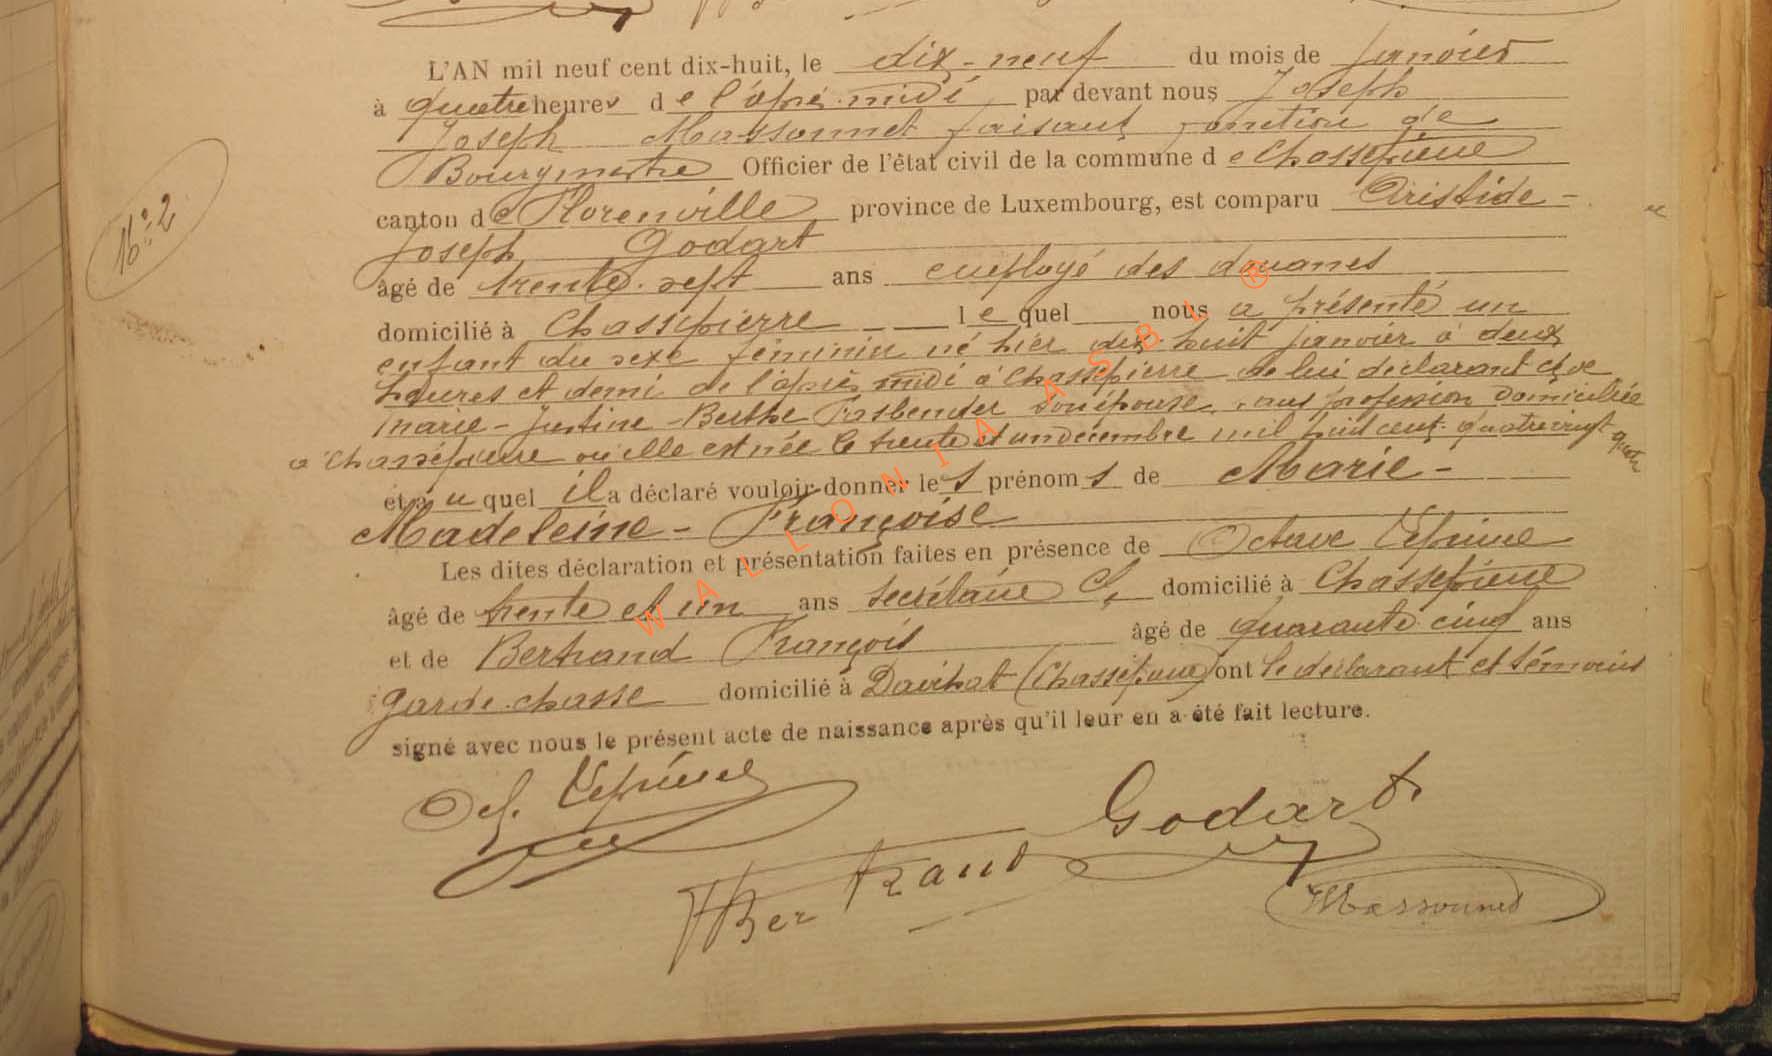 L'AN mil neuf cent dix-huit, le dix-neuf du mois de janvier
à quatre heures de l'après-midi par devant nous Joseph
Joseph Massonnet faisant fonction de
Bourgmestre Officier de l'état civil de la commune de Chassepierre
canton de Florenville, province de Luxembourg, est comparu Aristide-
Joseph Godart
âgé de trente-sept ans employé des douanes
domicilié à Chassepierre lequel nous a présenté un
enfant du sexe féminin né hier dix huit janvier à deux
heures et demi de l'après midi à Chassepierre de lui déclarant et de
Marie-Justine-Berthe Fasbender son épouse, sans profession domiciliée
à Chassepierre où elle est née le trente et un décembre mil huit cent quatre vingt
et auquel il a déclaré vouloir donner les prénoms de Marie-
Madeleine-Françoise
Les dites déclaration et présentation faites en présence de Octave Lépine
âgé de trente et un ans secrétaire Cl, domicilié à Chassepierre
et de Bertrand François âgé de quarante cinq ans
garde-chasse domicilié à (Chassepierre) ont le déclarant et témoins
signé avec nous le présent acte de naissance après qu'il leur en a été fait lecture.
N°: 2
Godart
Bertrand
Massonnet
WALLONIA ASBL ®